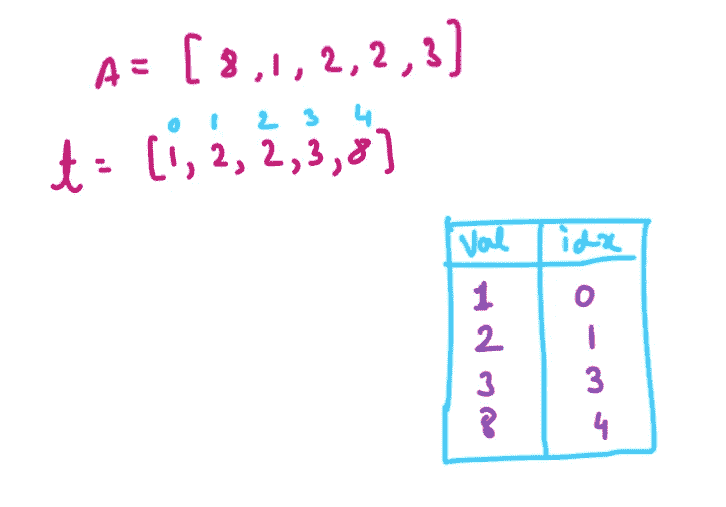 A = [ 8 , 1 , 2 , 2 , 3 ]
0 1 2 3 4
t = [ 1 , 2 , 2 , 3 , 8 ]
Val idx
1 0
2 1
3 3
8 4